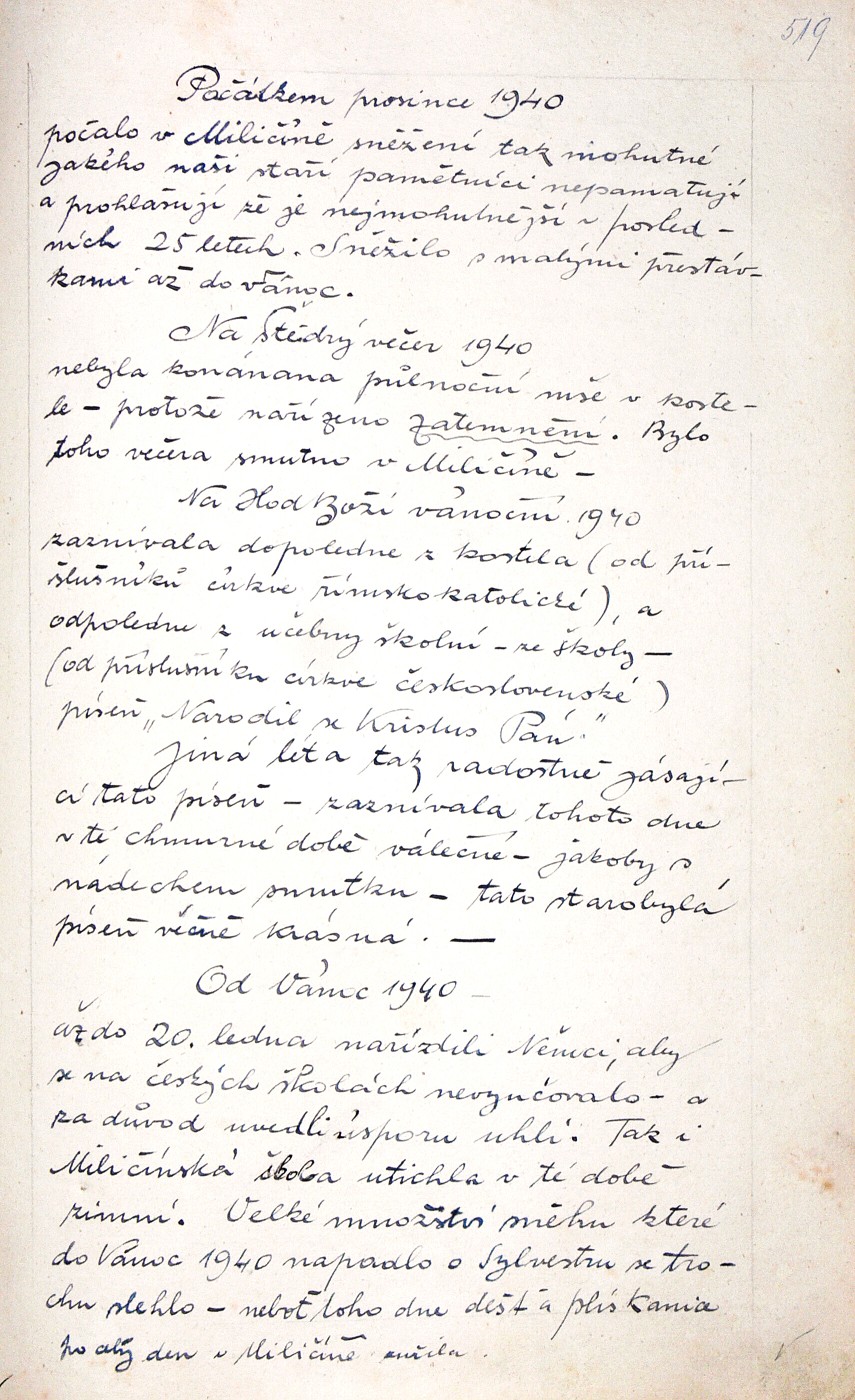 519
Počátkem prosince 1940
počalo v Miličíně sněžení tak mohutné
jakého naši staří pamětníci nepamatují
a prohlašují že je nejmohutnější v posled-
ních 25 letech. Sněžilo s malými přestáv-
kami až do vánoc.
Na Štědrý večer 1940
nebyla konánana půlnoční mše v koste-
le - protože nařízeno zatemnění. Bylo
toho večera smutno v Miličíně -
Na Hod Boží vánoční 1940
zaznívala dopoledne z kostela (od pří-
slušníků církve římskokatolické), a
odpoledne z učebny školní - ze školy -
(od příslušníku církve československé)
píseň „Narodil se Kristus Pán."
Jiná léta tak radostně jásají-
cí tato píseň - zaznívala tohoto dne
v té chmurné době válečné - jakoby s
nádechem smutku - tato starobylá
píseň věčně krásná. -
Od Vánoc 1940 -
až do 20. ledna nařízdili Němci, aby
se na českých školách nevyučovalo - a
za důvod uvedli úsporu uhlí. Tak i
Miličínská škola utichla v té době
zimní. Velké množství sněhu které
do Vánoc 1940 napadlo o Sylvestru se tro-
chu slehlo - neboť toho dne déšť a plískanice
po celý den v Miličíně